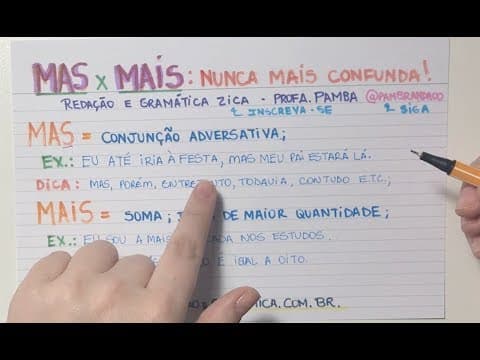 MAS X MAIS: NUNCA MAIS CONFUNDA!
REDAÇÃO E GRAMÁTICA ZICA - PROFA. PAMBA @PAMBRANDAOO
INSCREVA-SE SIGA
MAS = CONJUNÇÃO ADVERSATIVA;
EX.: EU ATÉ IRIA À FESTA, MAS MEU PAI ESTARÁ LÁ.
DICA: MAS, PORÉM, TODAVIA, CONTUDO ETC.;
MAIS = SOMA; DE MAIOR QUANTIDADE;
EX.: EU SOU A MAIS NOS ESTUDOS.
É IGAL A OITO.
.COM.BR.